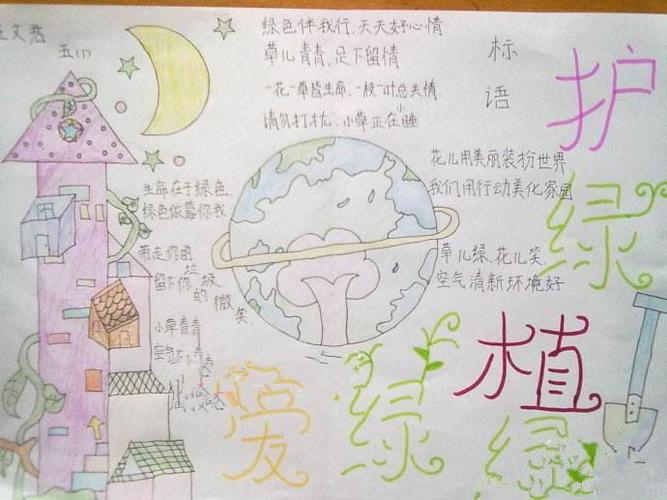 文君
五(1)
绿色伴我行,天天好心情
草儿青青,足下留情
一花一草皆生命,一枝一叶总关情
请勿打扰,小草正在睡
标语
护绿
花儿用美丽装扮世界
我们用行动美化家园
生命在于绿色,
绿色依靠你我
草儿绿,花儿笑
空气清新环境好
带走你的垃圾
留下你的微笑.
小草青青
空气
植绿
爱绿